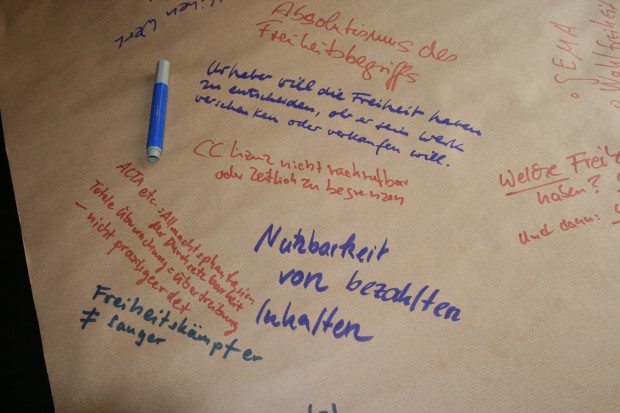 Absolutismus des
Freiheitsbegriffs
Urheber will die Freiheit haben
zu entscheiden, ob er sein Werk
verschenken oder verkaufen will.
CC Lizenz nicht rückrufbar
oder zeitlich zu begrenzen
ACTA etc.: Allmachtsphantasien
der Durchsetzbarkeit
Totale Überwachung = Übertreibung
– nicht praxisgeredet
Freiheitskämpfer
≠ Sauger
Nutzbarkeit
von bezahlten
Inhalten
• GEMA
• Wahlfreiheit
Welche Freih
haben?
Und dann: